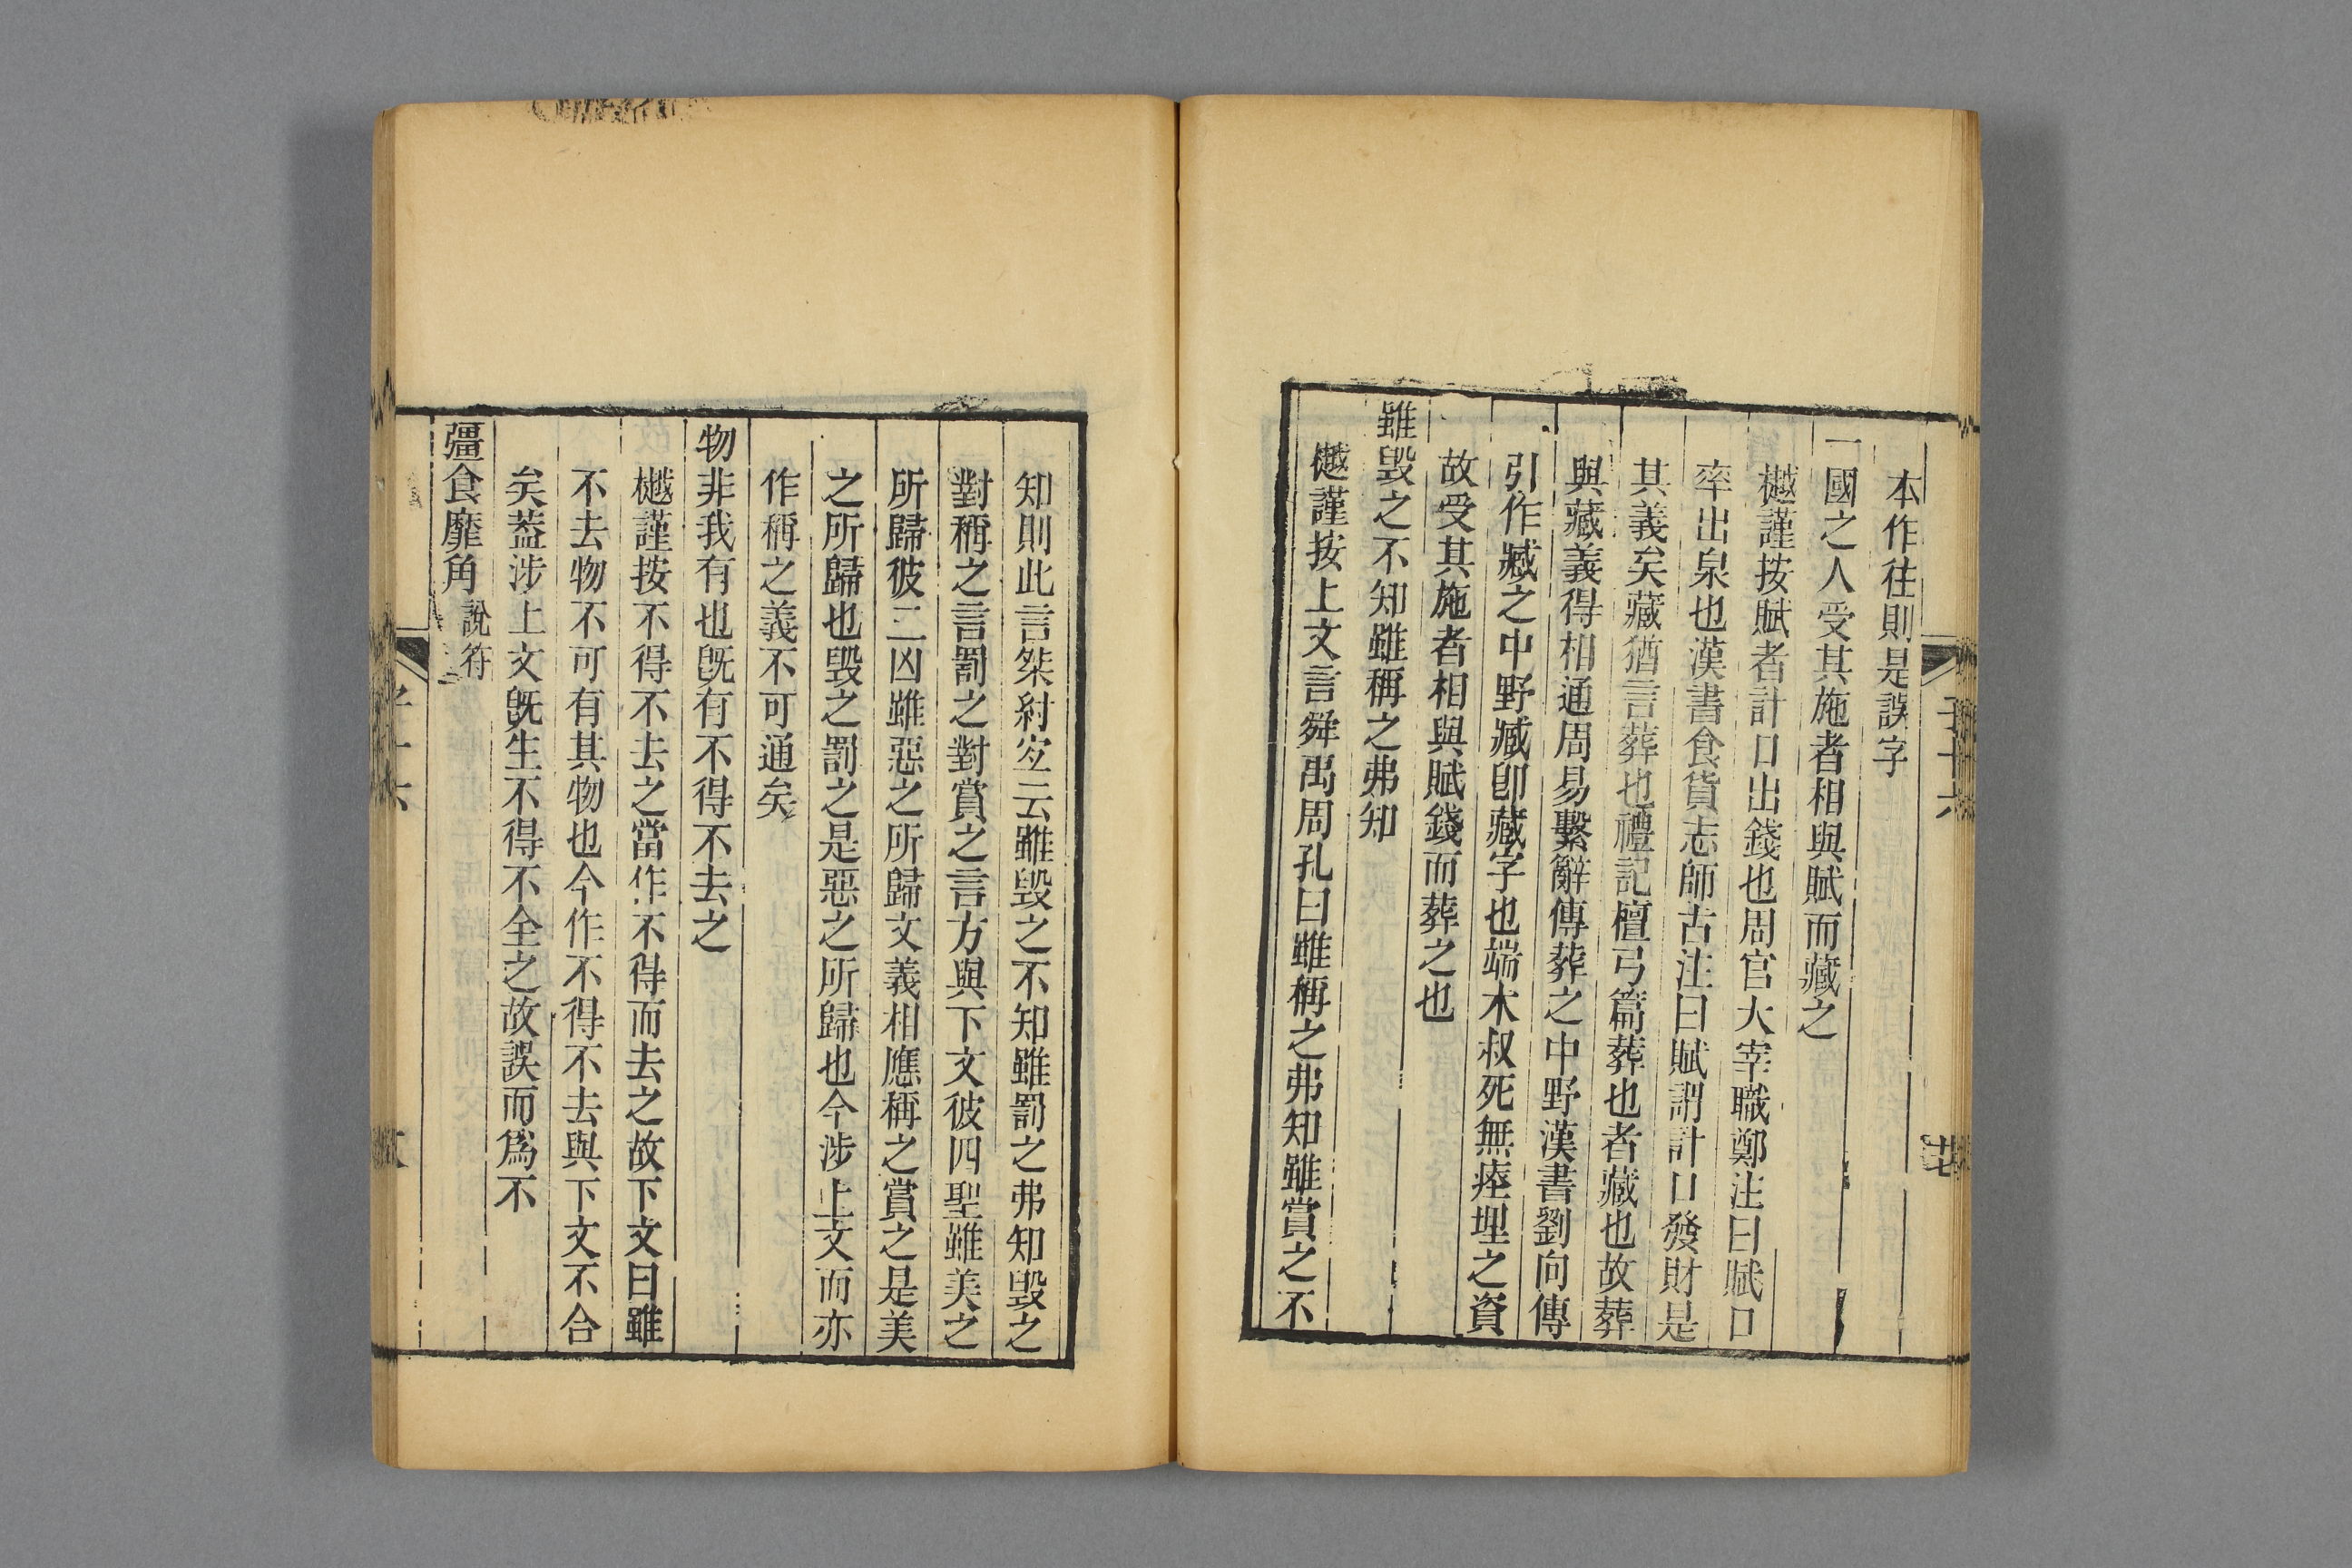 本作往則是誤字
一國之人受其施者相與賦而藏之
樾謹按賦者計口出錢也周官大宰職鄭注曰賦口
率出泉也漢書食貨志師古注曰賦謂計口發財是
其義矣藏猶言葬也禮記檀弓篇葬也者藏也故葬
與藏義得相通周易繫辭傳葬之中野漢書劉向傳
引作臧之中野臧卽藏字也端木叔死無瘞埋之資
故受其施者相與賦錢而葬之也
雖毀之不知雖稱之弗知
樾謹按上文言舜禹周孔曰雖稱之弗知雖賞之不
知則此言桀紂宐云雖毀之不知雖罰之弗知毀之
對稱之言罰之對賞之言方與下文彼四聖雖美之
所歸彼二凶雖惡之所歸文義相應稱之賞之是美
之所歸也毀之罰之是惡之所歸也今涉上文而亦
作稱之義不可通矣
物非我有也旣有不得不去之
樾謹按不得不去之當作不得而去之故下文曰雖
不去物不可有其物也今作不得不去與下文不合
矣葢涉上文旣生不得不全之故誤而爲不
彊食靡角 說符
子十六
廿